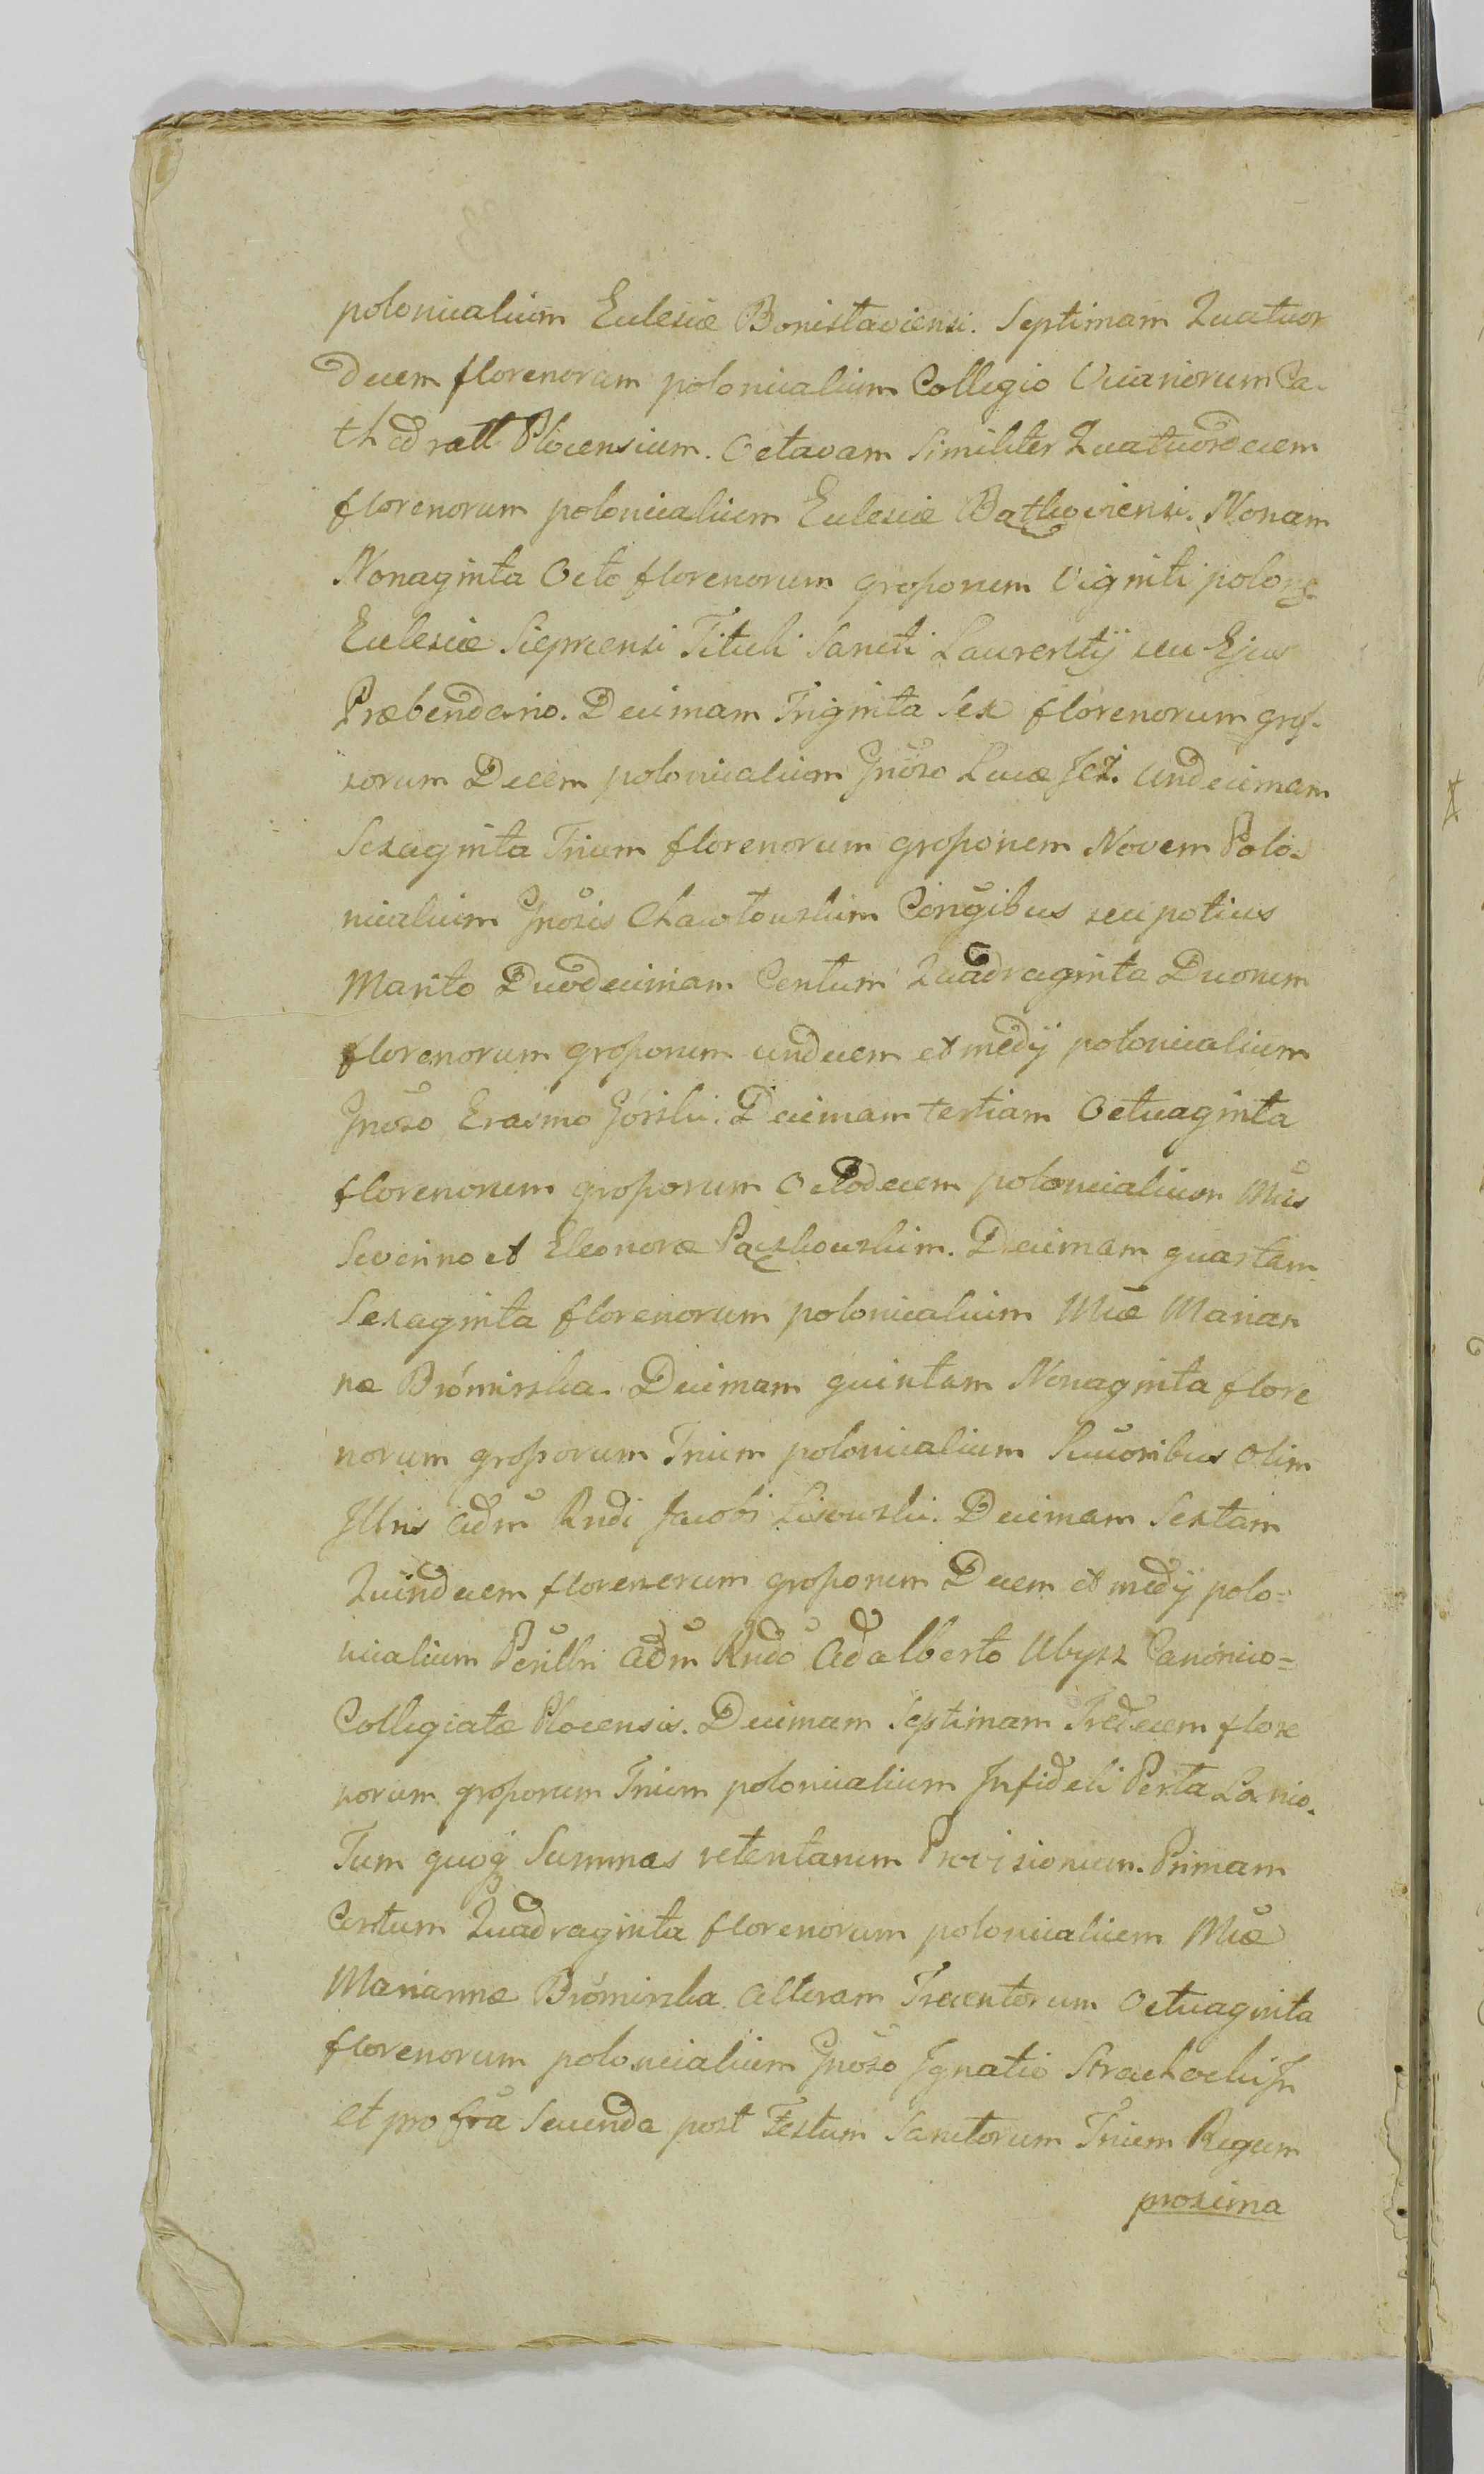 polonicalium Ecclesiæ Bonislaviensi. Septimam Quatuor
decem florenorum polonicalium Collegio Vicariorum Ca-
thedrall Plocensium. Octavam Similiter Quatuordecem
florenorum polonicalium Ecclesiæ Bątkoviensi. Nonam
Nonaginta Octo florenorum grossorum Viginti polone
Ecclesiæ Sieprcensi Tituli Sancti Laurentij seu Ejus
Præbendario. Decimam Triginta Sex florenorum gros-
sorum Decem polonicalium Gnoso Lucæ Jeż. Undecimam
Sexaginta Trium florenorum grossorum Novem Polo-
nicalium Gnosis Chawłowskim Conjugibus seu potius
Marito Duodecimam Centum Quadraginta Duorum
florenorum grossorum undecem et medij polonicalium
Gnoso Erasmo Górski. Decimam tertiam Octuaginta
florenorum grossorum Octodecem polonicalium Mcis
Severino et Eleonoræ Pączkowskim. Decimam quartam
Sexaginta florenorum polonicalium Mcæ Marian
næ Brómirska. Decimam quintam Nonaginta flore
norum grossorum Trium polonicalium Sucoribus olim
Illris Adm Rndi Jacobi Lisowski. Decimam Sextam
Quindecem florenorum grossorum Decem et medij polo=
nicalium Perillri Adm Rndo Adalberto Ubysz Canonico=
Collegiatæ Plocensis. Decimam Septimam Tredecem flore
norum grossorum Trium polonicalium Infideli Perla Lanio.
Tum quoq Summas retentarum Provisionum. Primam
Centum Quadraginta florenorum polonicalium Mcæ
Mariannæ Brómirska. Alteram Trecentorum Octuaginta
florenorum polonicalium Gnoso Ignatio Strachocki In
et pro fra Secunda post Festum Sanctorum Trium Regum
proxima